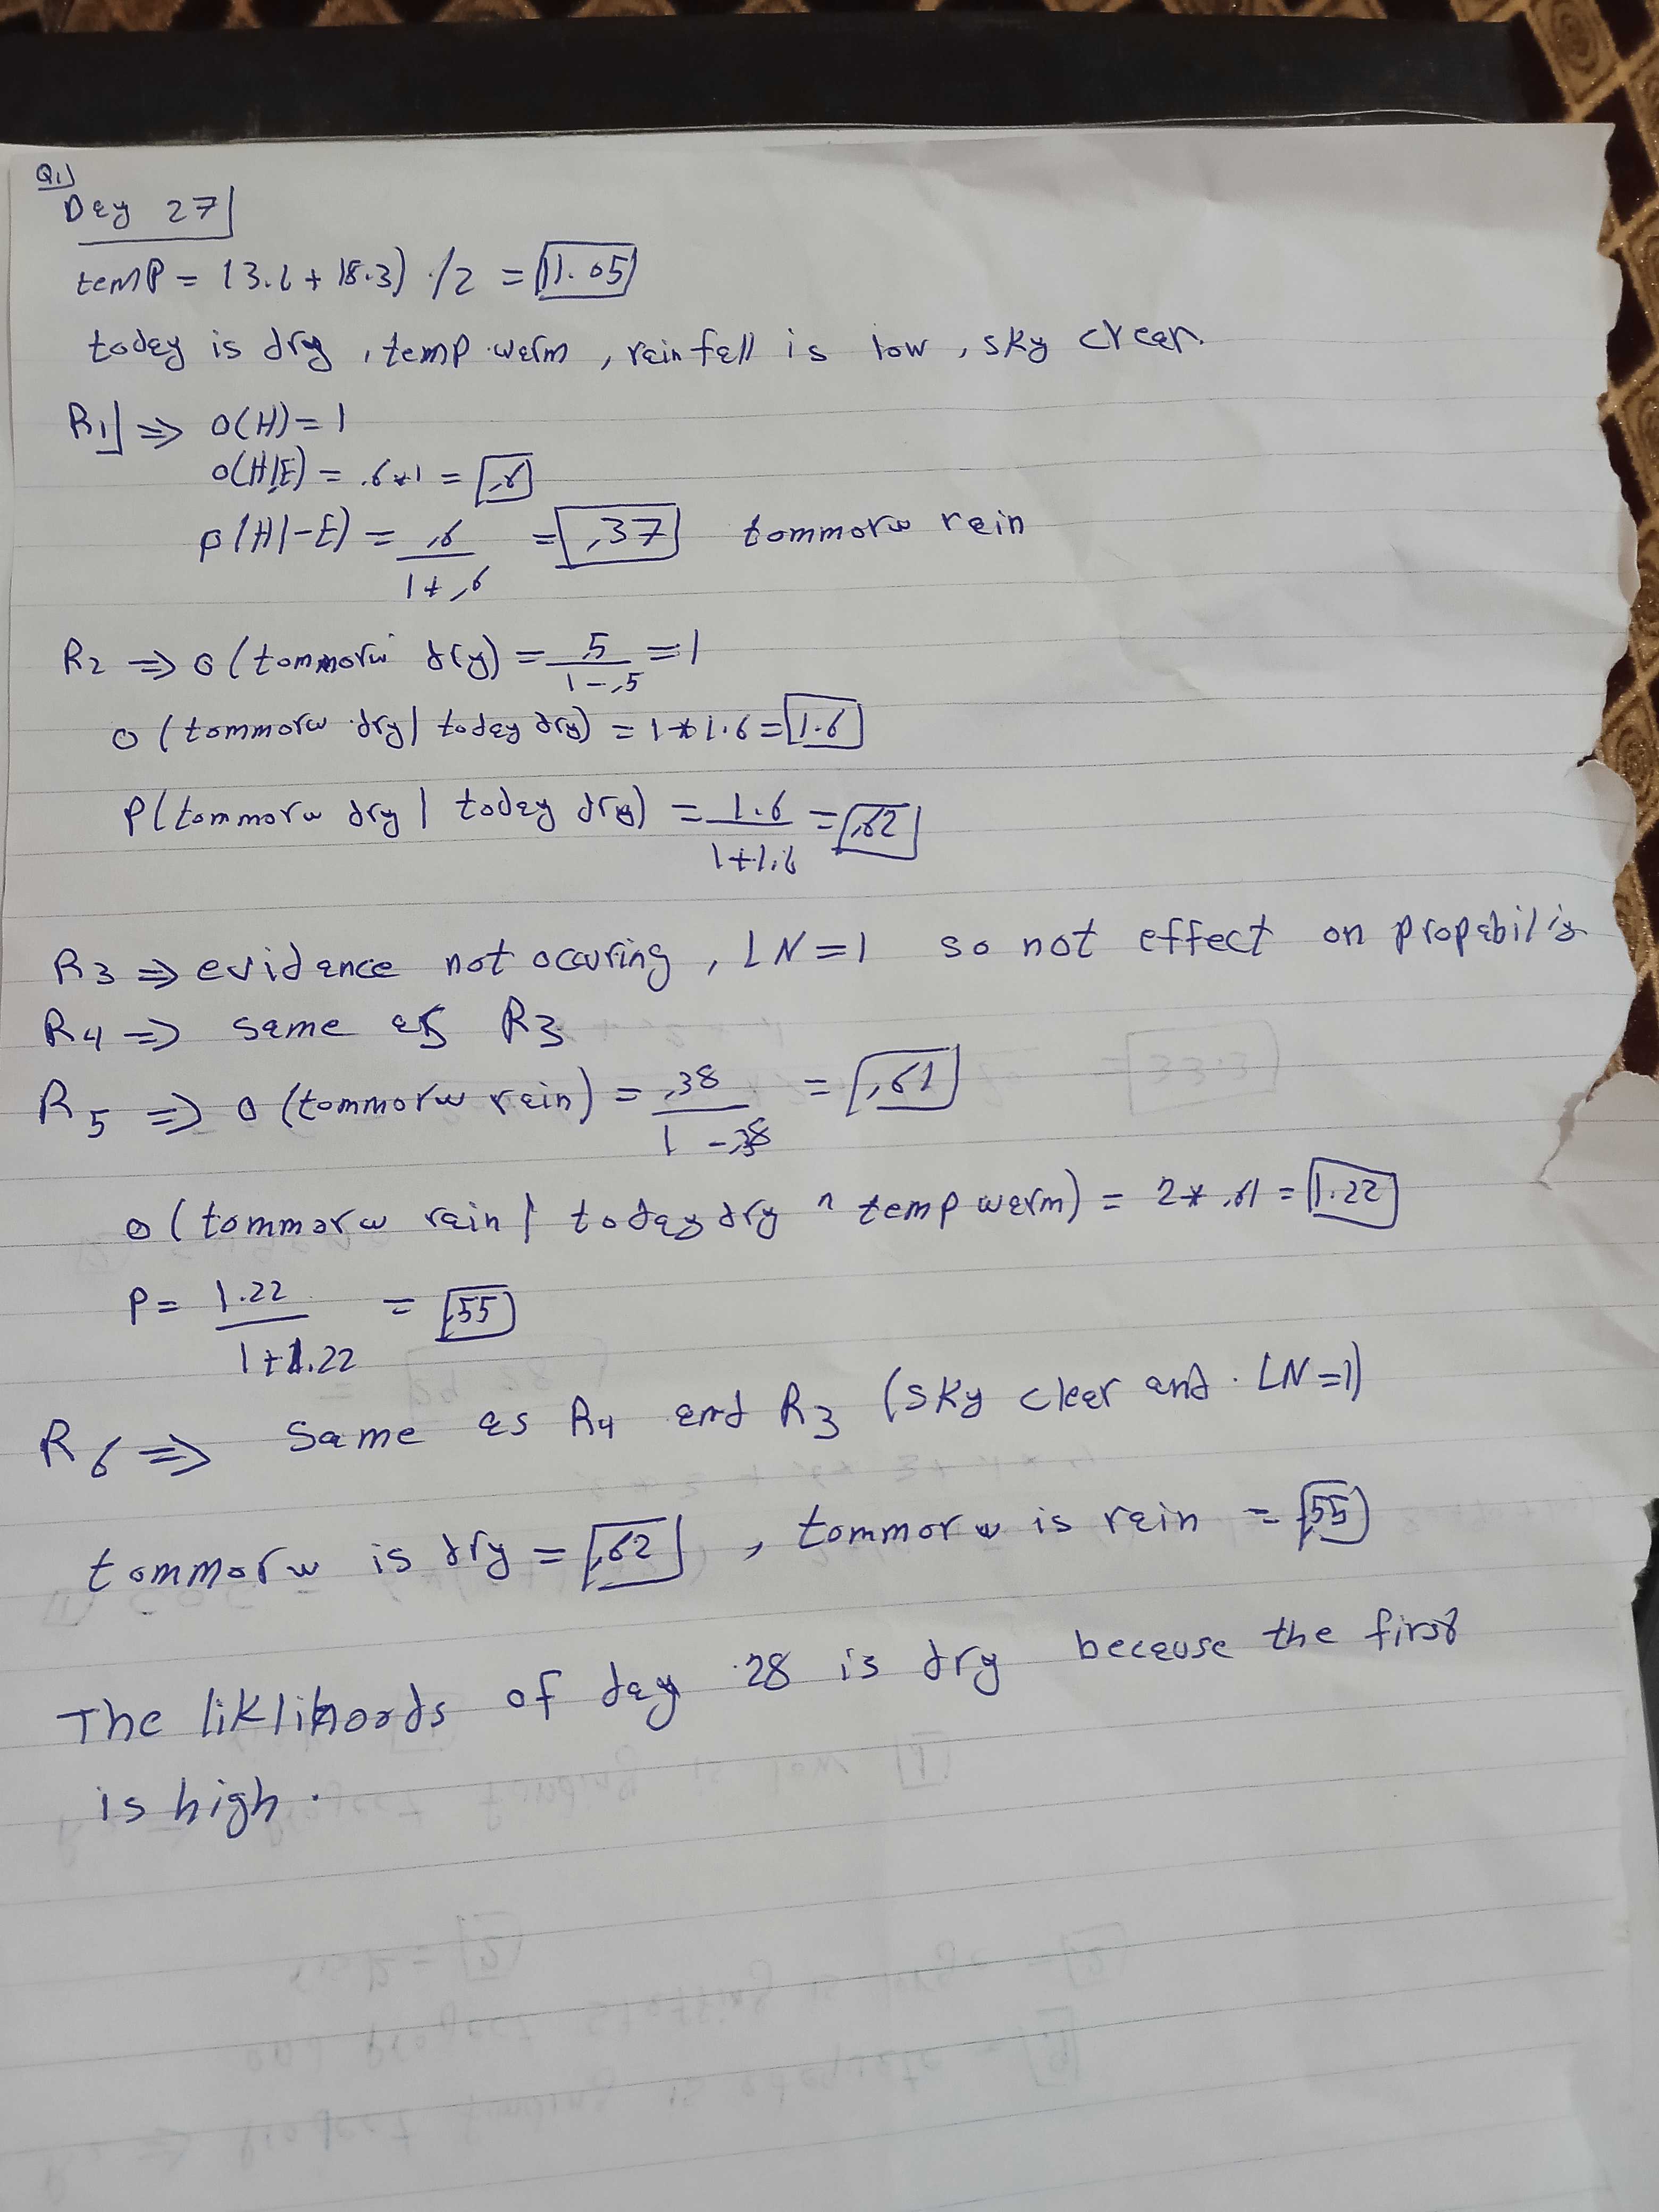 Q1)
Day 27
temp = (3.6 + 18.3) /2 = 11.05
today is dry, temp warm, rainfall is low, sky clear.
R1 => O(H) = 1
O(H|E) = .6*1 = .6
P(H|-E) = .6 / 1+.6 = .37 tommorw rain
R2 => O(tommorw dry) = .5 / 1-.5 = 1
O(tommorw dry | today dry) = 1*1.6 = 1.6
P(tommorw dry | today dry) = 1.6 / 1+1.6 = .62
R3 => evidance not occuring, LN=1 so not effect on
R4 => same as R3
R5 => O(tommorw rain) = .38 / 1-.38 = .61
O(tommorw rain | today dry ^ temp warm) = 2*.61 = 1.22
P = 1.22 / 1+1.22 = .55
R6 => Same as R4 and R3 (sky clear and LN=1)
tommorw is dry = .62, tommorw is rain = .55
The of day 28 is dry because the first
is high.